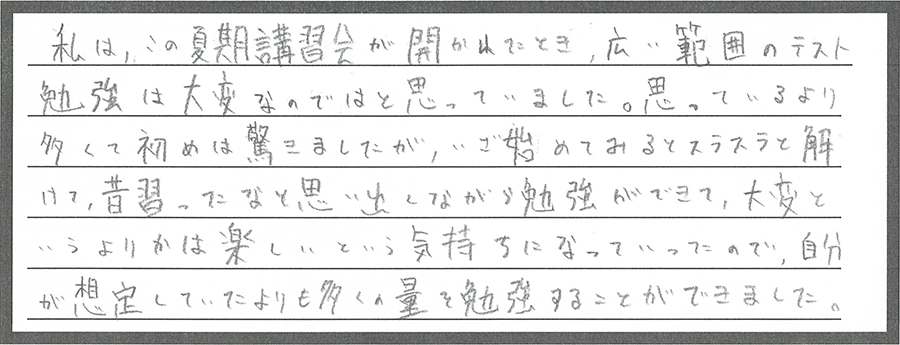 私は,この夏期講習会が開かれたとき,広い範囲のテスト
勉強は大変なのではと思っていました。思っているより
多くて初めは驚きましたが,いざ始めてみるとスラスラと解
けて,昔習ったなと思い出しながら勉強ができて,大変と
いうよりかは楽しいという気持ちになっていったので,自分
が想定していたよりも多くの量を勉強することができました。